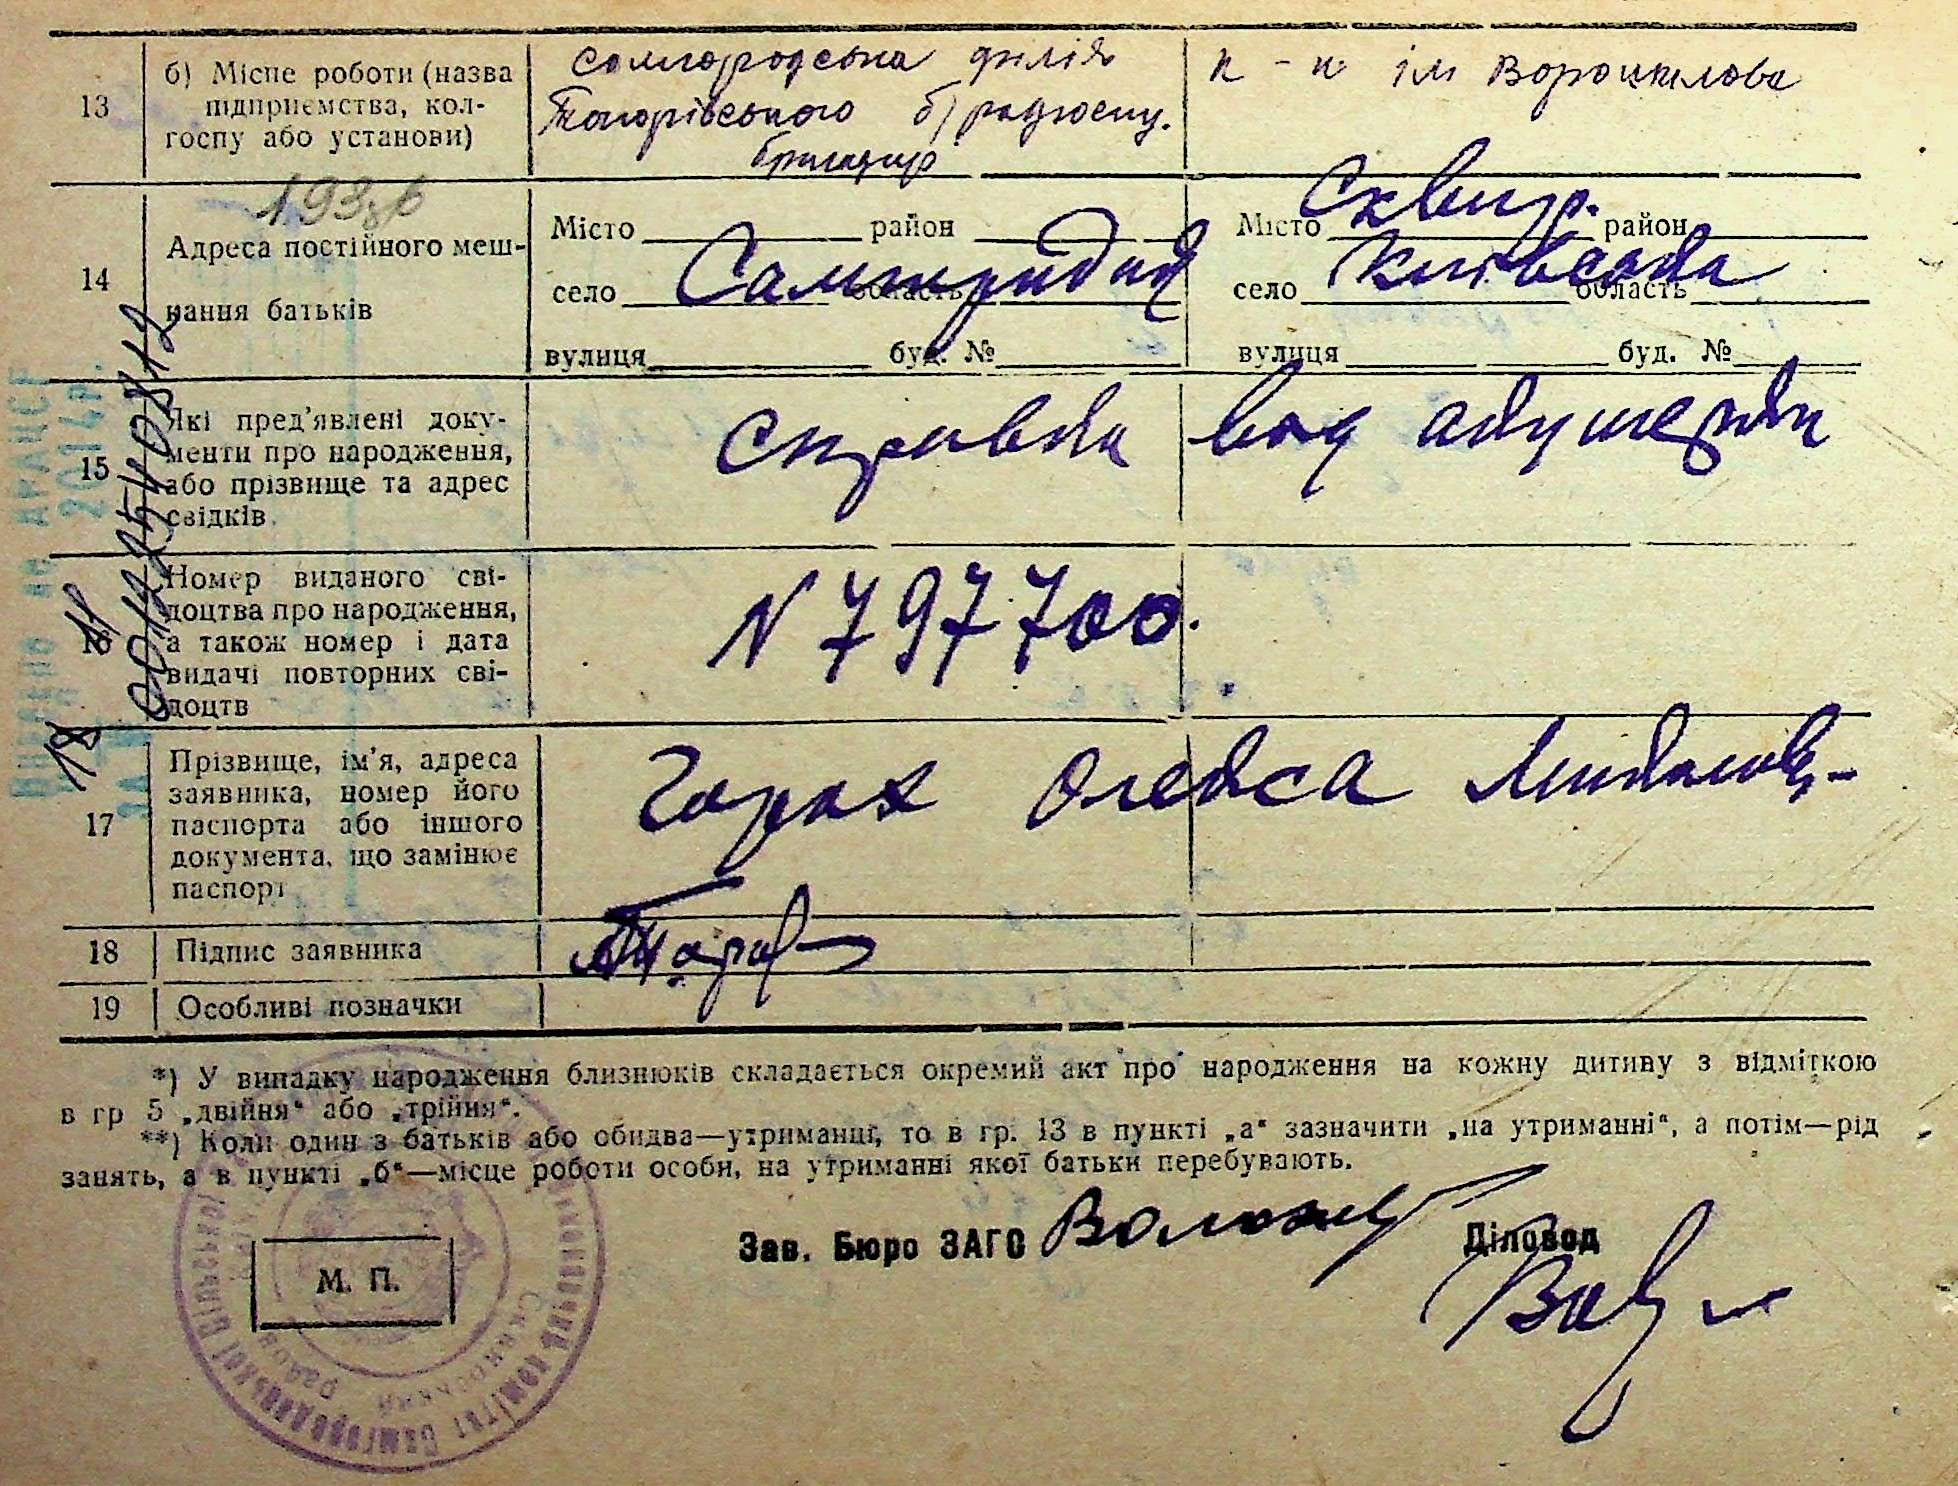 13
б) Місце роботи (назва
підприємства, кол-
госпу або установи)
філія
б/радгоспу.
бригадир
к-п ім Ворошилова
14
Адреса постійного меш-
кання батьків
Місто район
село область
вулиця буд. №
Місто Сквир. район
село Київська область
вулиця буд. №
15
Які пред’явлені доку-
менти про народження,
або прізвище та адрес
свідків
справка від акушерки
16
Номер виданого сві-
доцтва про народження,
а також номер і дата
видачі повторних сві-
доцтв
N 797700.
17
Прізвище, ім’я, адреса
заявника, номер його
паспорта або іншого
документа, що замінює
паспорт
Олекса
18
Підпис заявника
19
Особливі позначки
*) У випадку народження близнюків складається окремий акт про народження на кожну дитину з відміткою
в гр 5 „двійня“ або „трійня“.
**) Коли один з батьків або обидва—утриманці, то в гр. 13 в пункті „а“ зазначити „на утриманні“, а потім—рід
занять, а в пункті „б“—місце роботи особи, на утриманні якої батьки перебувають.
Зав. Бюро ЗАГС
Діловод
М. П.